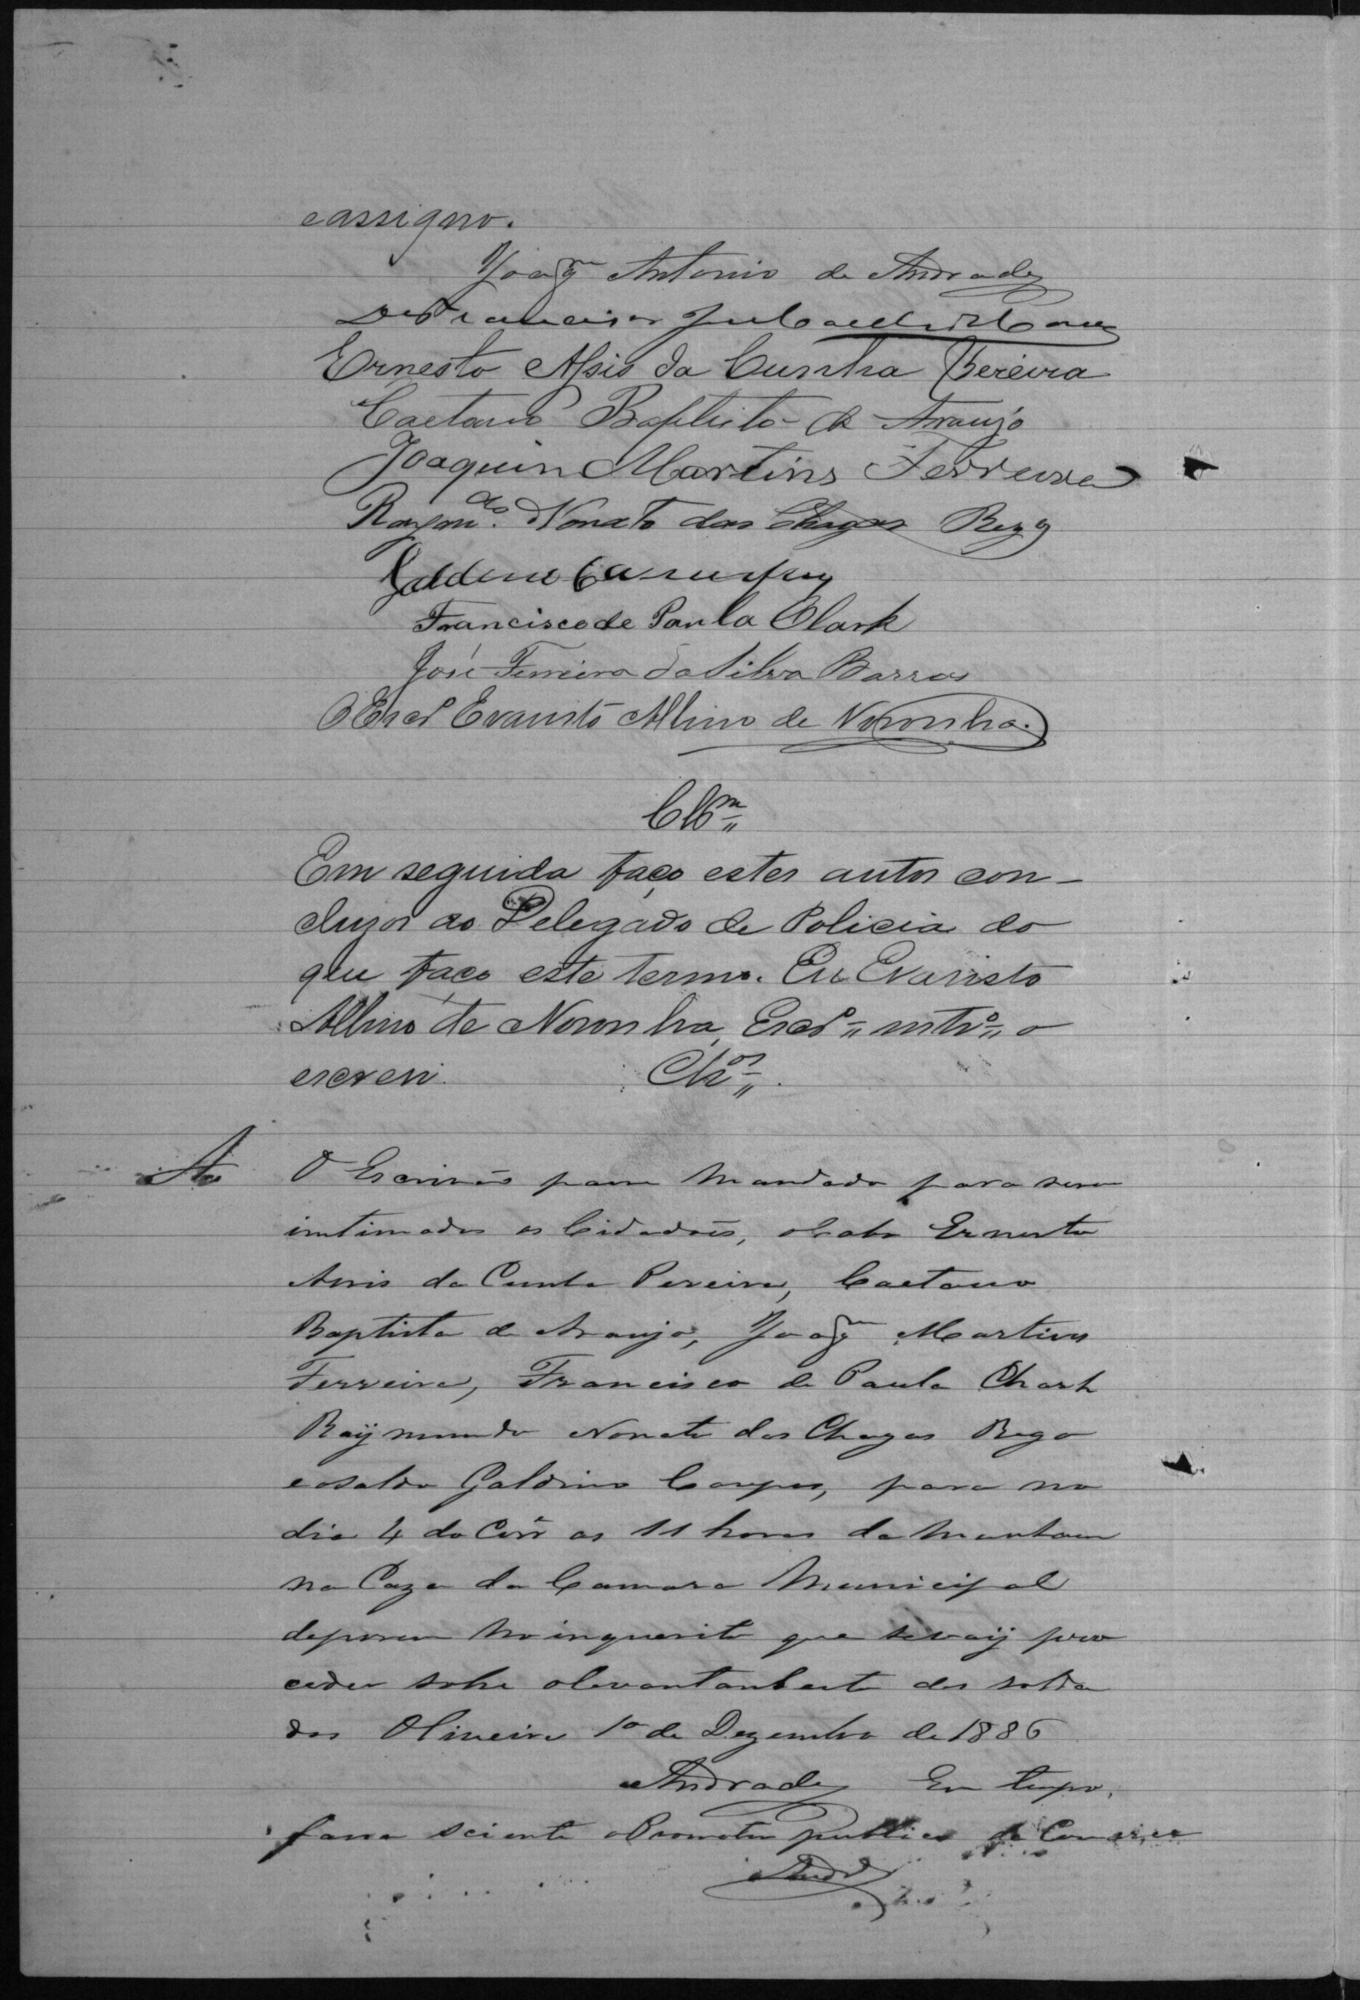 e assigno.
Joaqm Antonio de Andrade
Ernesto Assis da Cunha Pereira
Caetano Baptista de Araujo
Joaquin Martins Ferreira
Raymdo. Nonato das Chagas Rego
Galdino
Francisco de Paula Clark
José Ferreira da Silva Barros
O Escrm Evaristo Albino de Noronha.
Clsm
Em seguida faço estes autos con-
cluzos ao Delegado de Policia do
que faço este termo. Eu Evaristo
Albino de Noronha, Escrm intro o
escrevi. Clzos
A O Escrivão passe Mandado para serem
intimados os Cidadõis, o Cabo Ernesto
Assis da Cunha Pereira, Caetano
Baptista de Araujo, Joaqm Martins
Ferreira, Francisco de Paula Chark
Raÿmundo Nonato das Chagas Rego
e o soldo Galdino Campos, para no
dia 4 do Corr as 11 horas da Manham
na Caza da Camara Municipal
deporem no inquerito que se vaÿ pro
ceder sobre o levantamento dos solda
dos Oliveira 1o de Dezembro de 1886
Andrade Em tempo,
fassa sciente o Promotor publico da Comarca
Andre